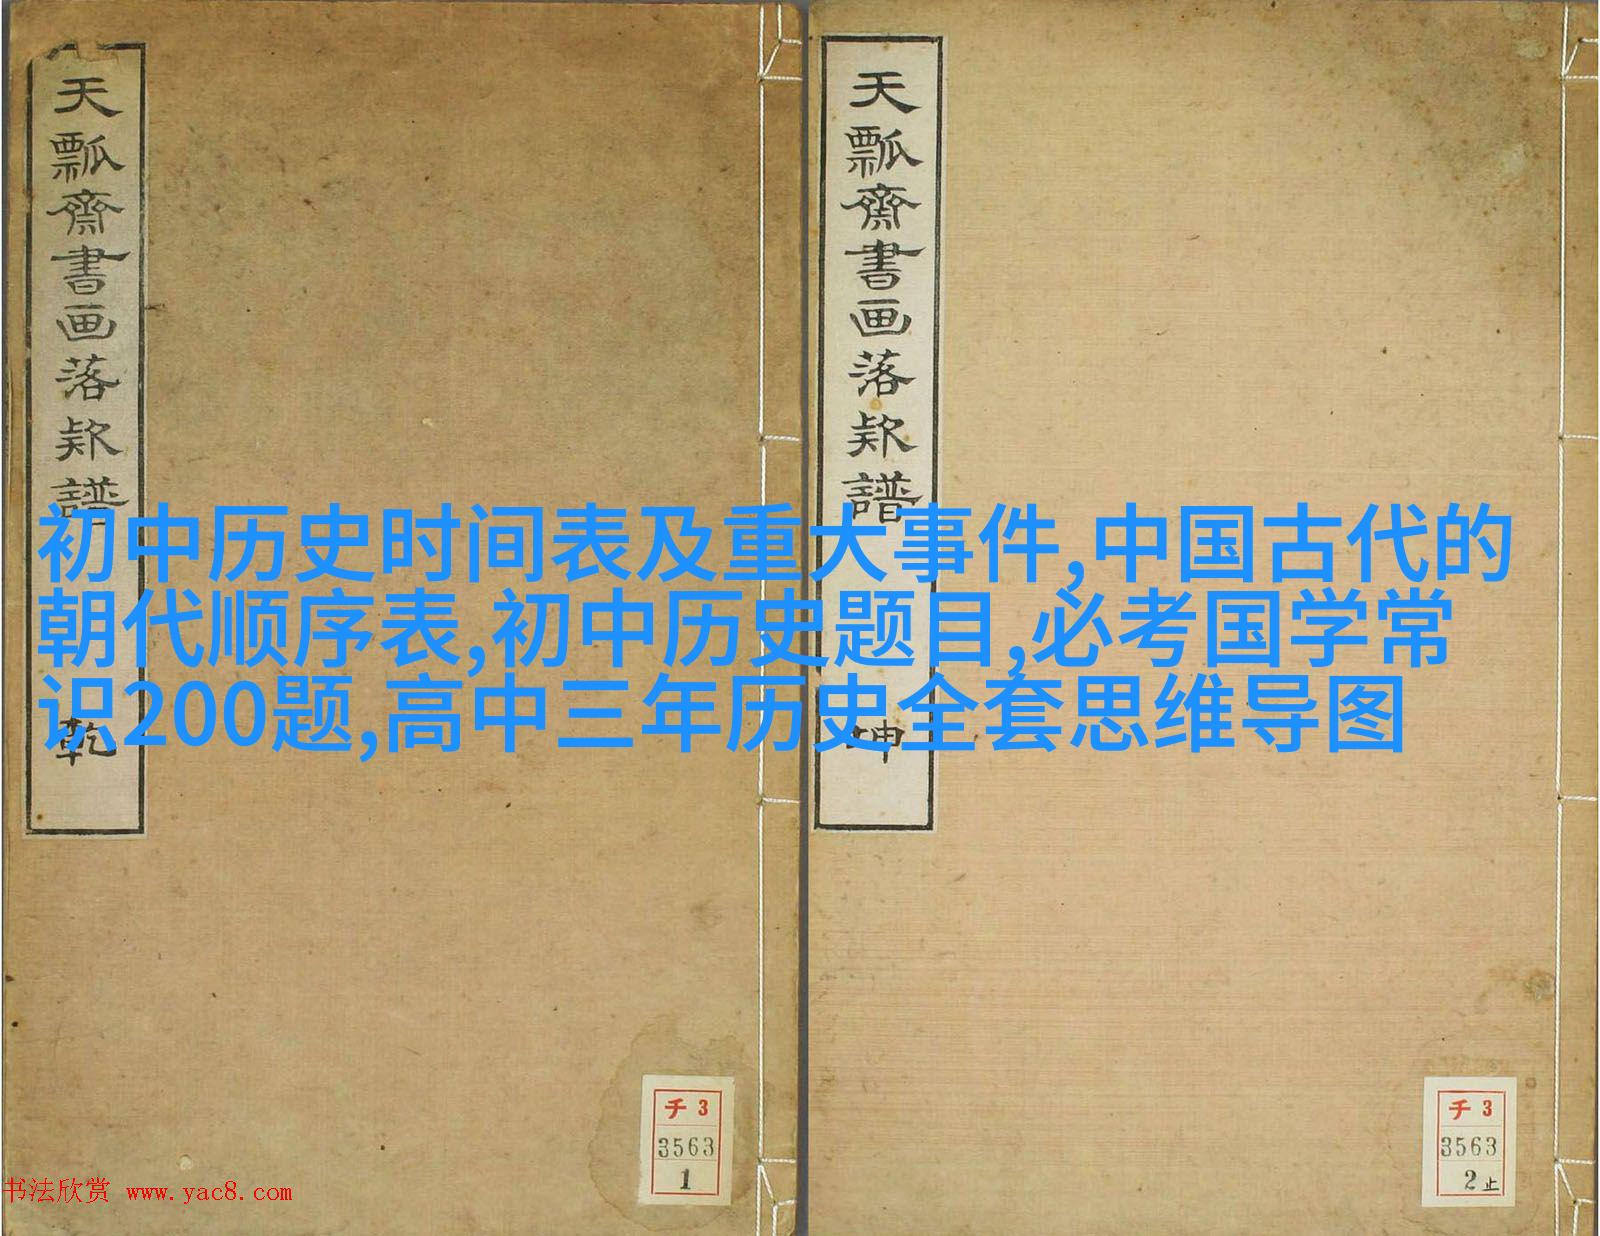 天瓢齋書画落款譜
乾
天瓢齋書画落款譜
坤
初中历史时间表及重大事件,中国古代的
朝代顺序表,初中历史题目,必考国学常
识200题,高中三年历史全套思维导图
チ3
3563
1
チ3
3563
2止
书法欣赏 www.yac8.com